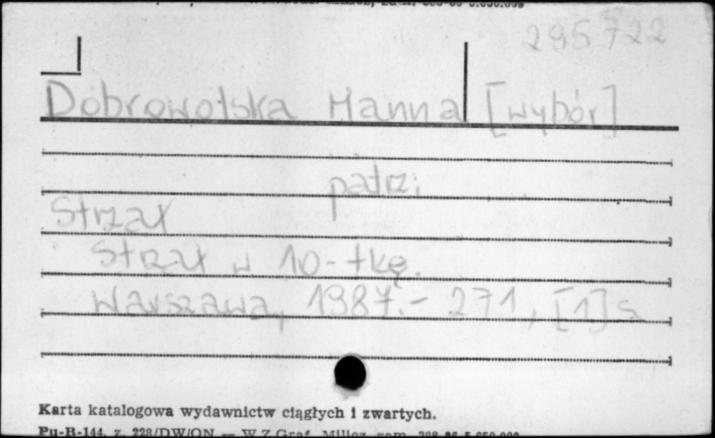 295722
Dobrowolska Hanna [wybór]
patrz
Strzał
Strzał w 10-tkę.
Warszawa, 1987.- 271, [1] s
Karta katalogowa wydawnictw ciągłych i zwartych.
Pu-B-144, z. 228/DW/ON — W.Z.Graf. Milicz, zam.